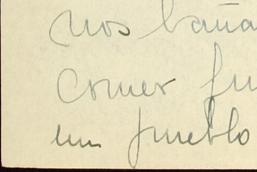 nos baña
comer fu
un pueblo